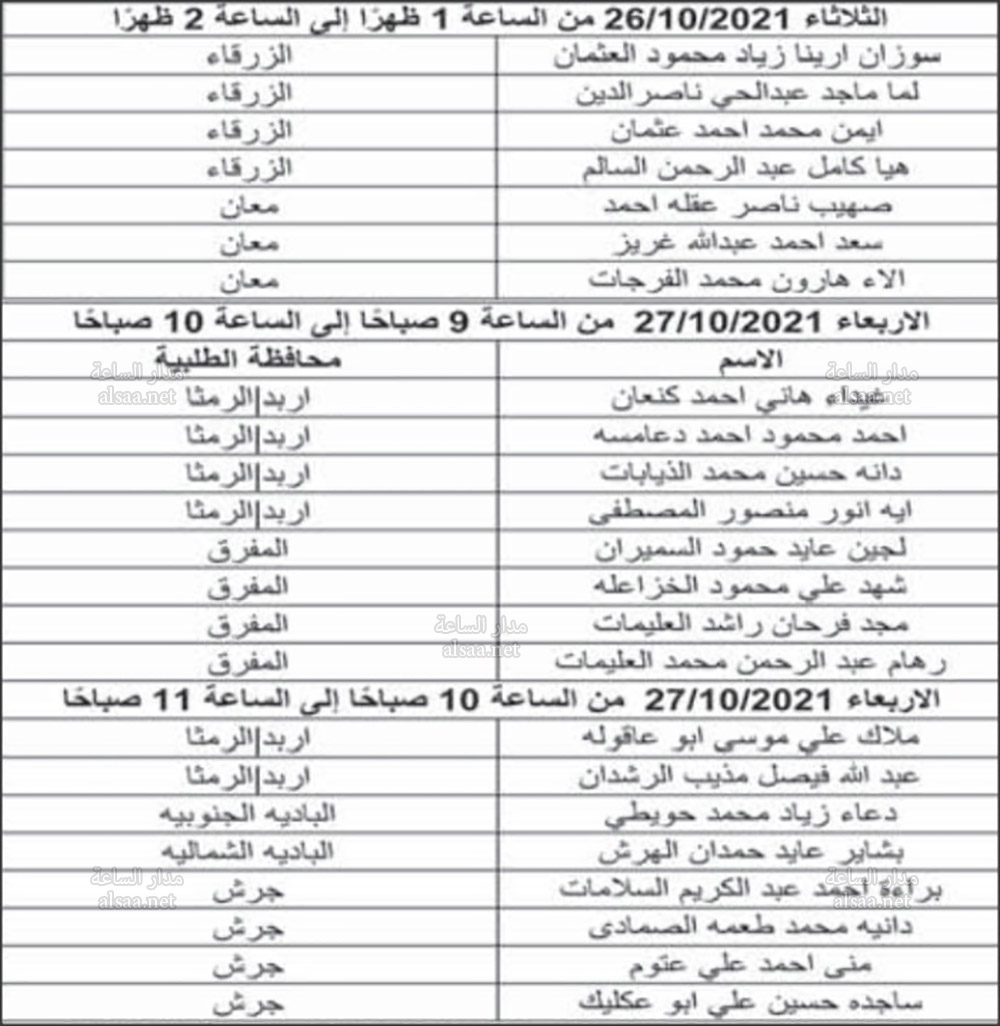 الثلاثاء 26/10/2021 من الساعة 1 ظهرًا إلى الساعة 2 ظهرًا
سوزان ارينا زياد محمود العثمان الزرقاء
لما ماجد عبدالحي ناصر الدين الزرقاء
ايمن محمد احمد عثمان الزرقاء
هيا كامل عبد الرحمن السالم الزرقاء
صهيب ناصر عقله احمد معان
سعد احمد عبدالله غريز معان
الاء هارون محمد الفرجات معان
الاربعاء 27/10/2021 من الساعة 9 صباحًا إلى الساعة 10 صباحًا
الاسم محافظة الطلبية
مدار الساعة مدار الساعة
alsaa.net alsaa.net
شيداء هاني احمد كنعان اربد|الرمثا
احمد محمود احمد دعامسه اربد|الرمثا
دانه حسين محمد الذيابات اربد|الرمثا
ايه انور منصور المصطفى اربد|الرمثا
لجين عايد حمود السميران المفرق
شهد علي محمود الخزاعله المفرق
مجد فرحان راشد العليمات المفرق
مدار الساعة
alsaa.net
رهام عبد الرحمن محمد العليمات المفرق
الاربعاء 27/10/2021 من الساعة 10 صباحًا إلى الساعة 11 صباحًا
ملاك علي موسى ابو عاقوله اربد|الرمثا
عبد الله فيصل مذيب الرشدان اربد|الرمثا
دعاء زياد محمد حويطي الباديه الجنوبيه
بشاير عايد حمدان الهرش الباديه الشماليه
مدار الساعة مدار الساعة
براءة احمد عبد الكريم السلامات جرش
alsaa.net alsaa.net
دانيه محمد طعمه الصمادى جرش
منى احمد علي عتوم جرش
ساجده حسين علي ابو عكليك جرش